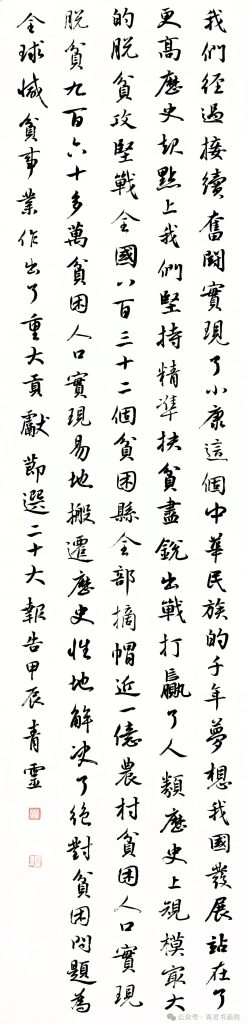 我們經過接續奮鬪實現了小康這個中華民族的千年夢想我國發展站在了
更高歷史起點上我們堅持精準扶貧盡銳出戰打贏了人類歷史上規模寂大
的脫貧攻堅戰全國八百三十二個貧困縣全部摘帽近一億農村貧困人口實現
脫貧九百六十多萬貧困人口實現易地搬遷歷史性地解决了絕對貧困問題為
全球減貧事業作出了重大貢獻節選二十大報告甲辰青靈
公众号·青灵书画院